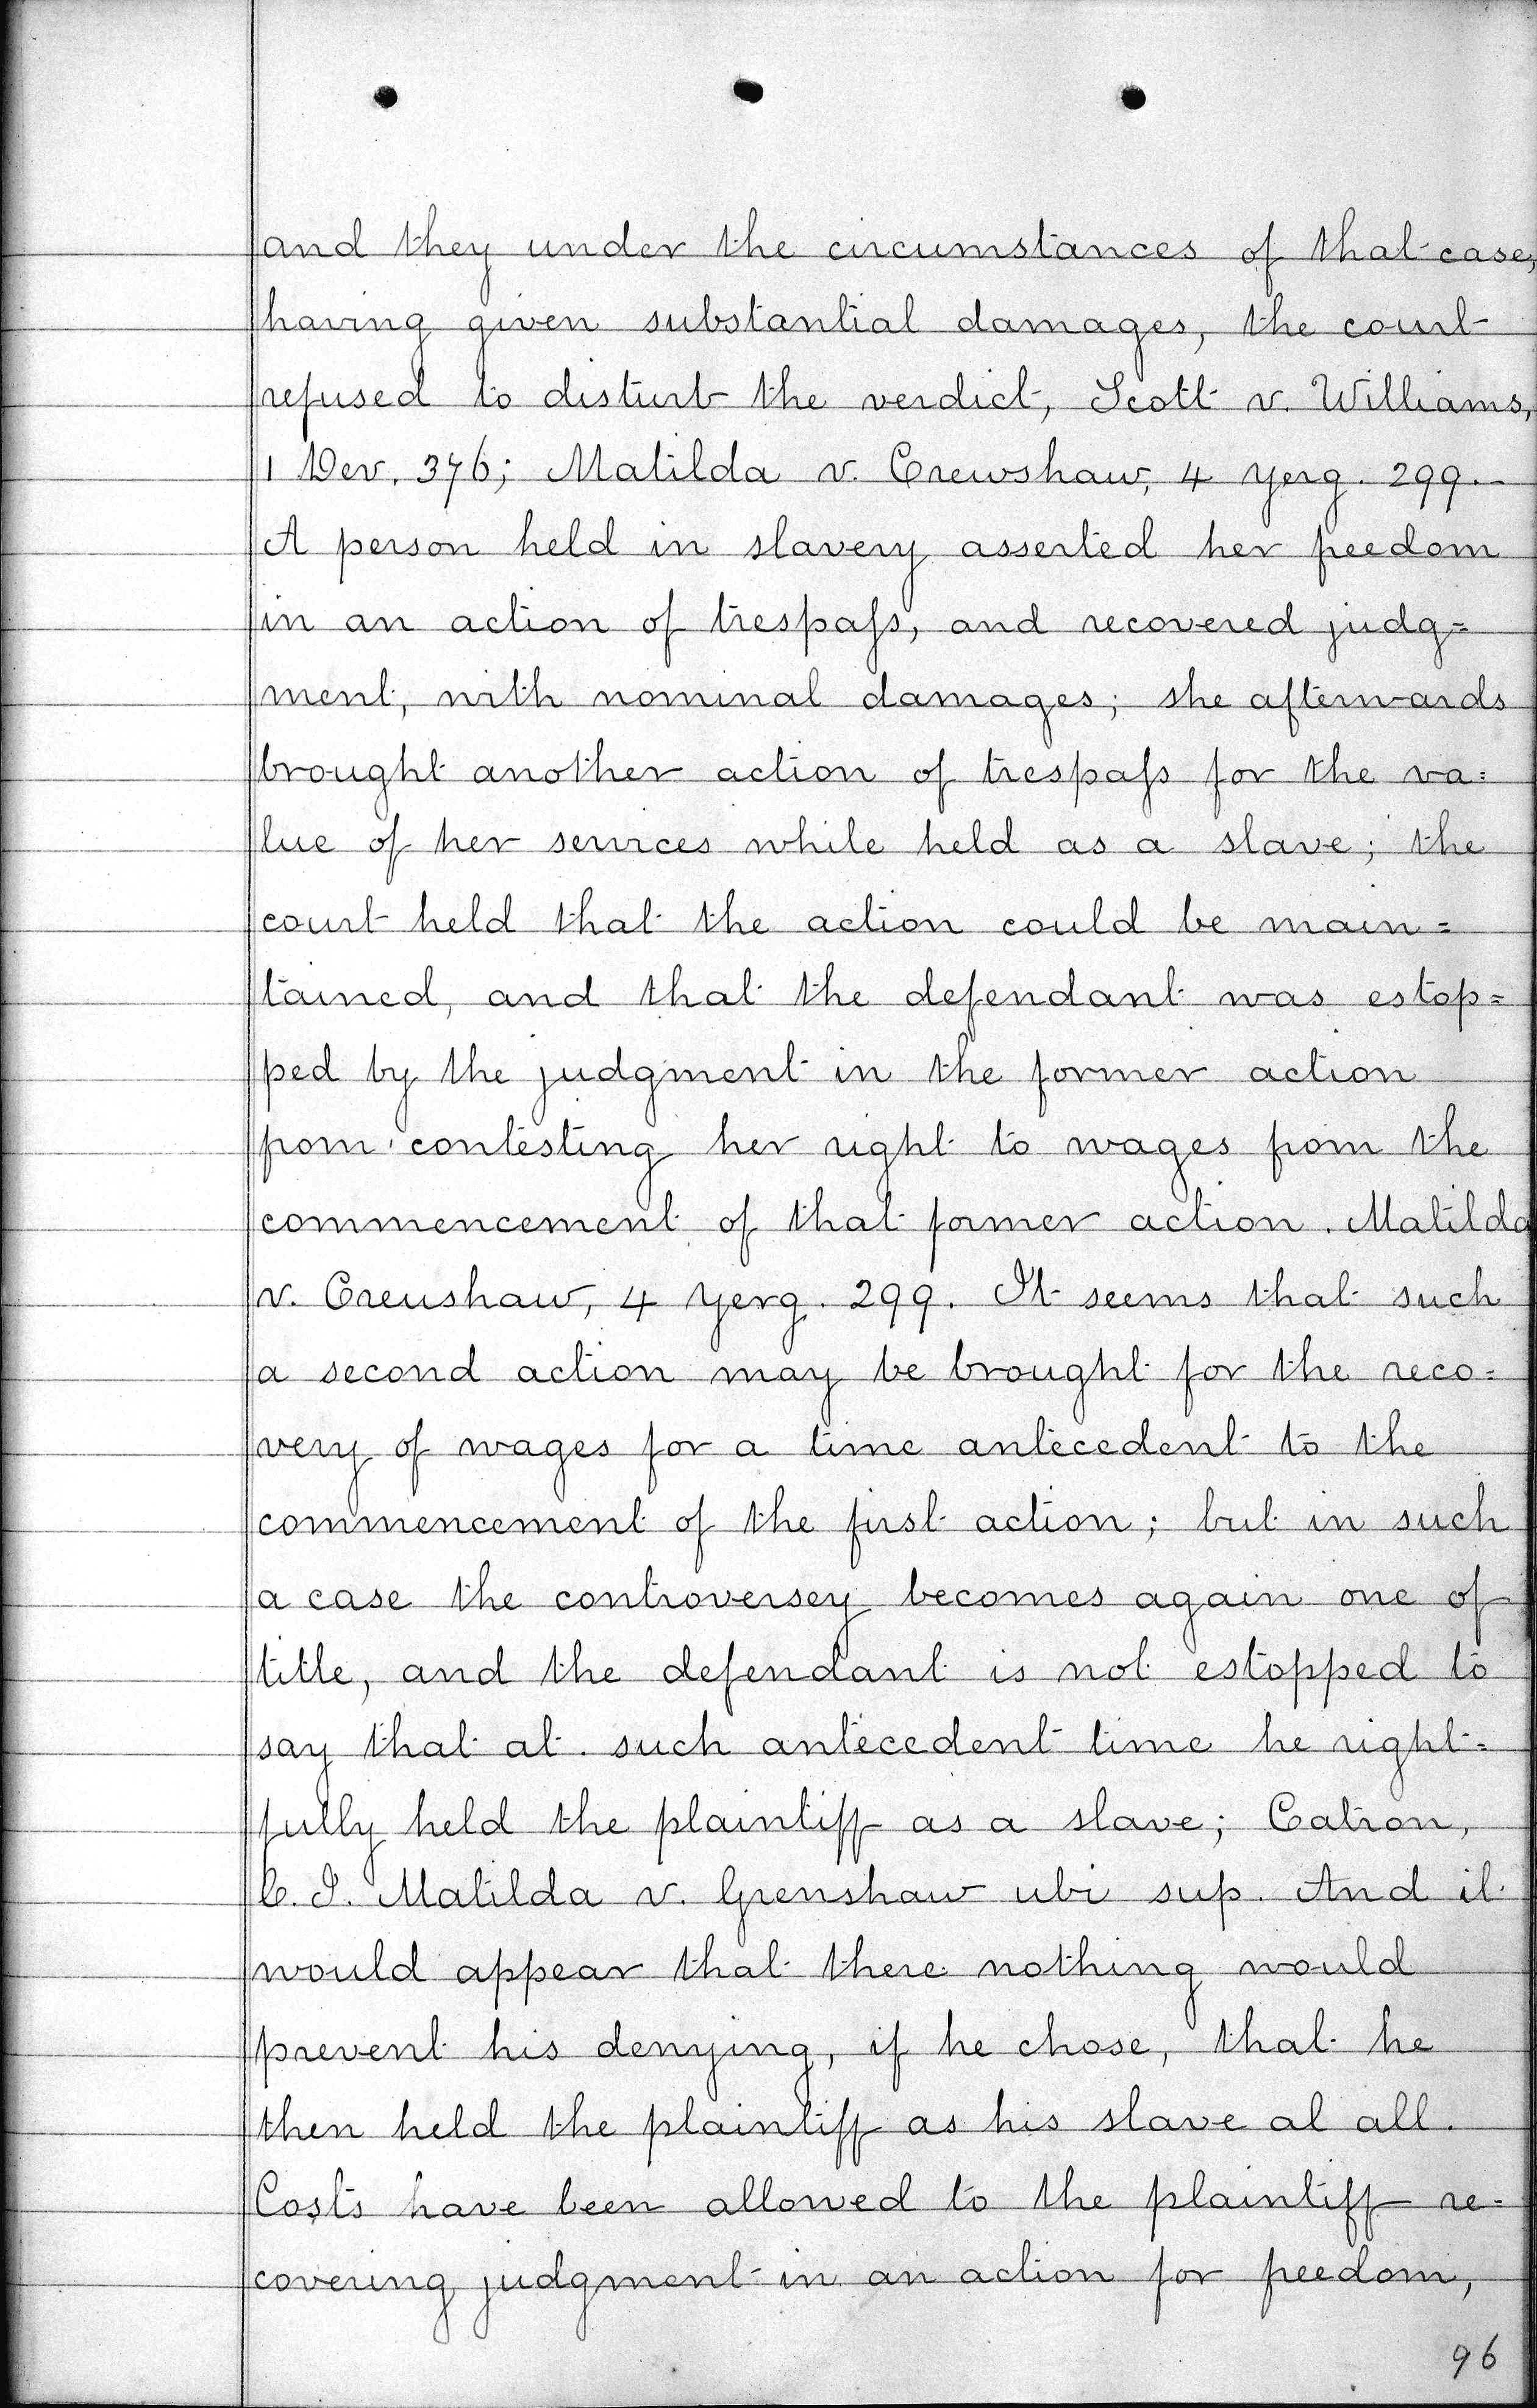 and they under the circumstances of that case,
having given substantial damages, the court
refused to disturb the verdict, Scott v. Williams,
1 Dev. 376; Matilda v. Crewshaw, 4 Yerg. 299.
A person held in slavery asserted her freedom
in an action of trespass, and recovered judg=
ment, with nominal damages; she afterwards
brought another action of trespass for the va=
lue of her services while held as a slave; the
court held that the action could be main=
tained, and that the defendant was estop=
ped by the judgment in the former action
from contesting her right to wages from the
commencement of that former action. Matilda
v. Creushaw, 4 Yerg. 299. It seems that such
a second action may be brought for the reco=
very of wages for a time antecedent to the
commencement of the first action; but in such
a case the controversey becomes again one of
title, and the defendant is not estopped to
say that at such antecedent time he right=
fully held the plaintiff as a slave; Catron,
C. J. Matilda v. Grenshaw ubi sup. And it
would appear that there nothing would
prevent his denying, if he chose, that he
then held the plaintiff as his slave al all.
Costs have been allowed to the plaintiff re=
covering judgment in an action for freedom,
96